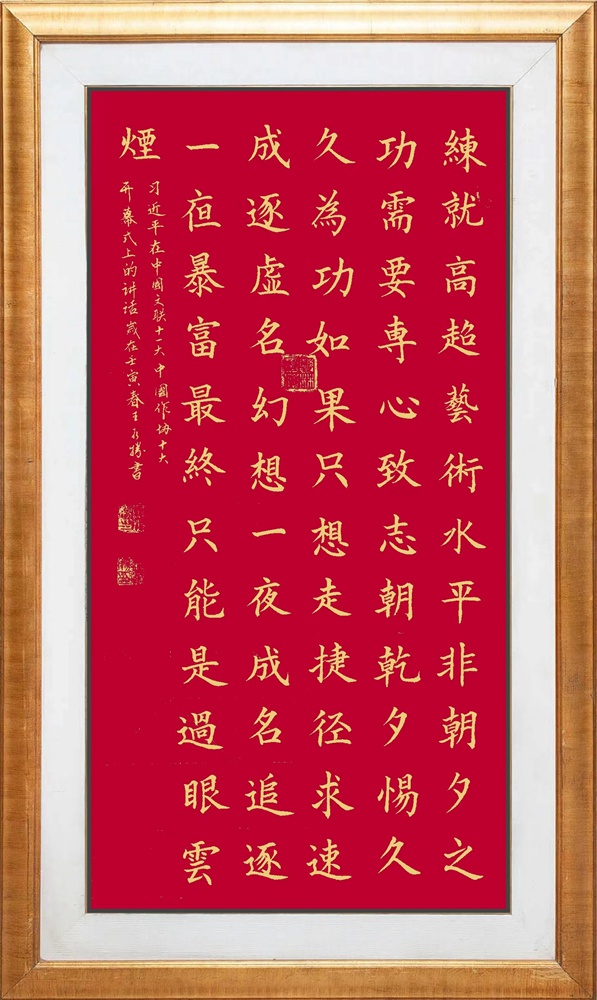 練就高超藝術水平非朝夕之
功需要専心致志朝乾夕惕久
久為功如果只想走捷径求速
成逐虚名幻想一夜成名追逐
一亱暴富最終只能是過眼雲
煙
习近平在中國文联十一大中國作协十大
开幕式上的讲话岁在壬寅春王永胜書